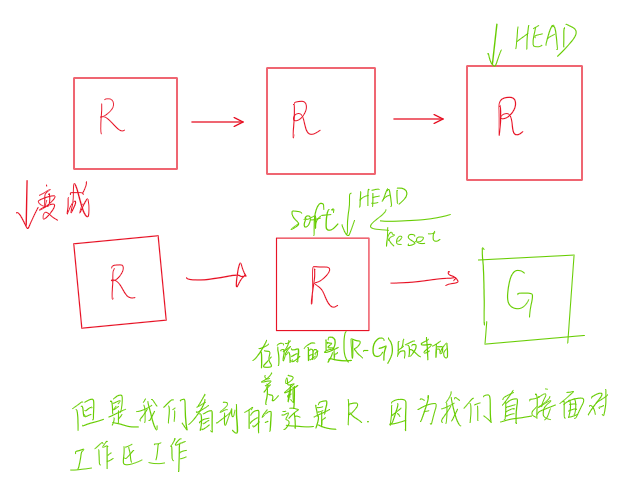 HEAD
R R R
变成
soft HEAD
Reset
R R G
存储的是(R-G)版本的
差异
但是我们看到的还是R.因为我们直接面对
工作区工作